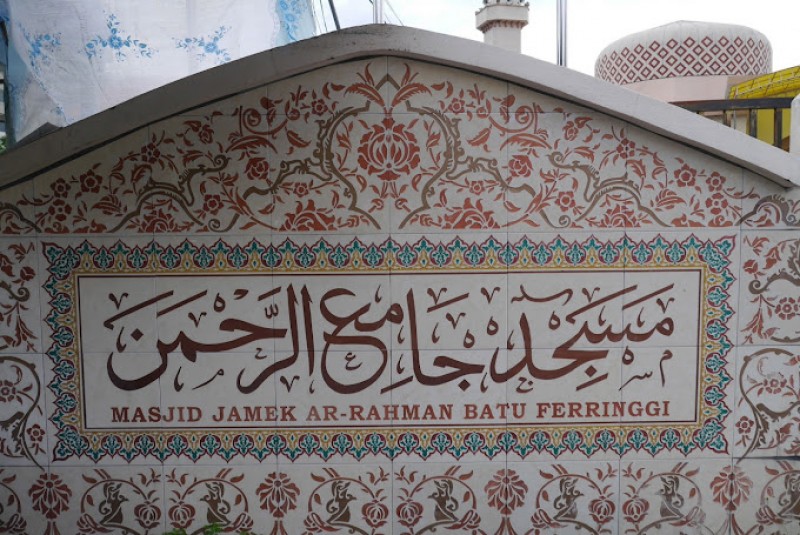 مَسْجِد جَامِع الرَّحْمَن
MASJID JAMEK AR-RAHMAN BATU FERRINGGI